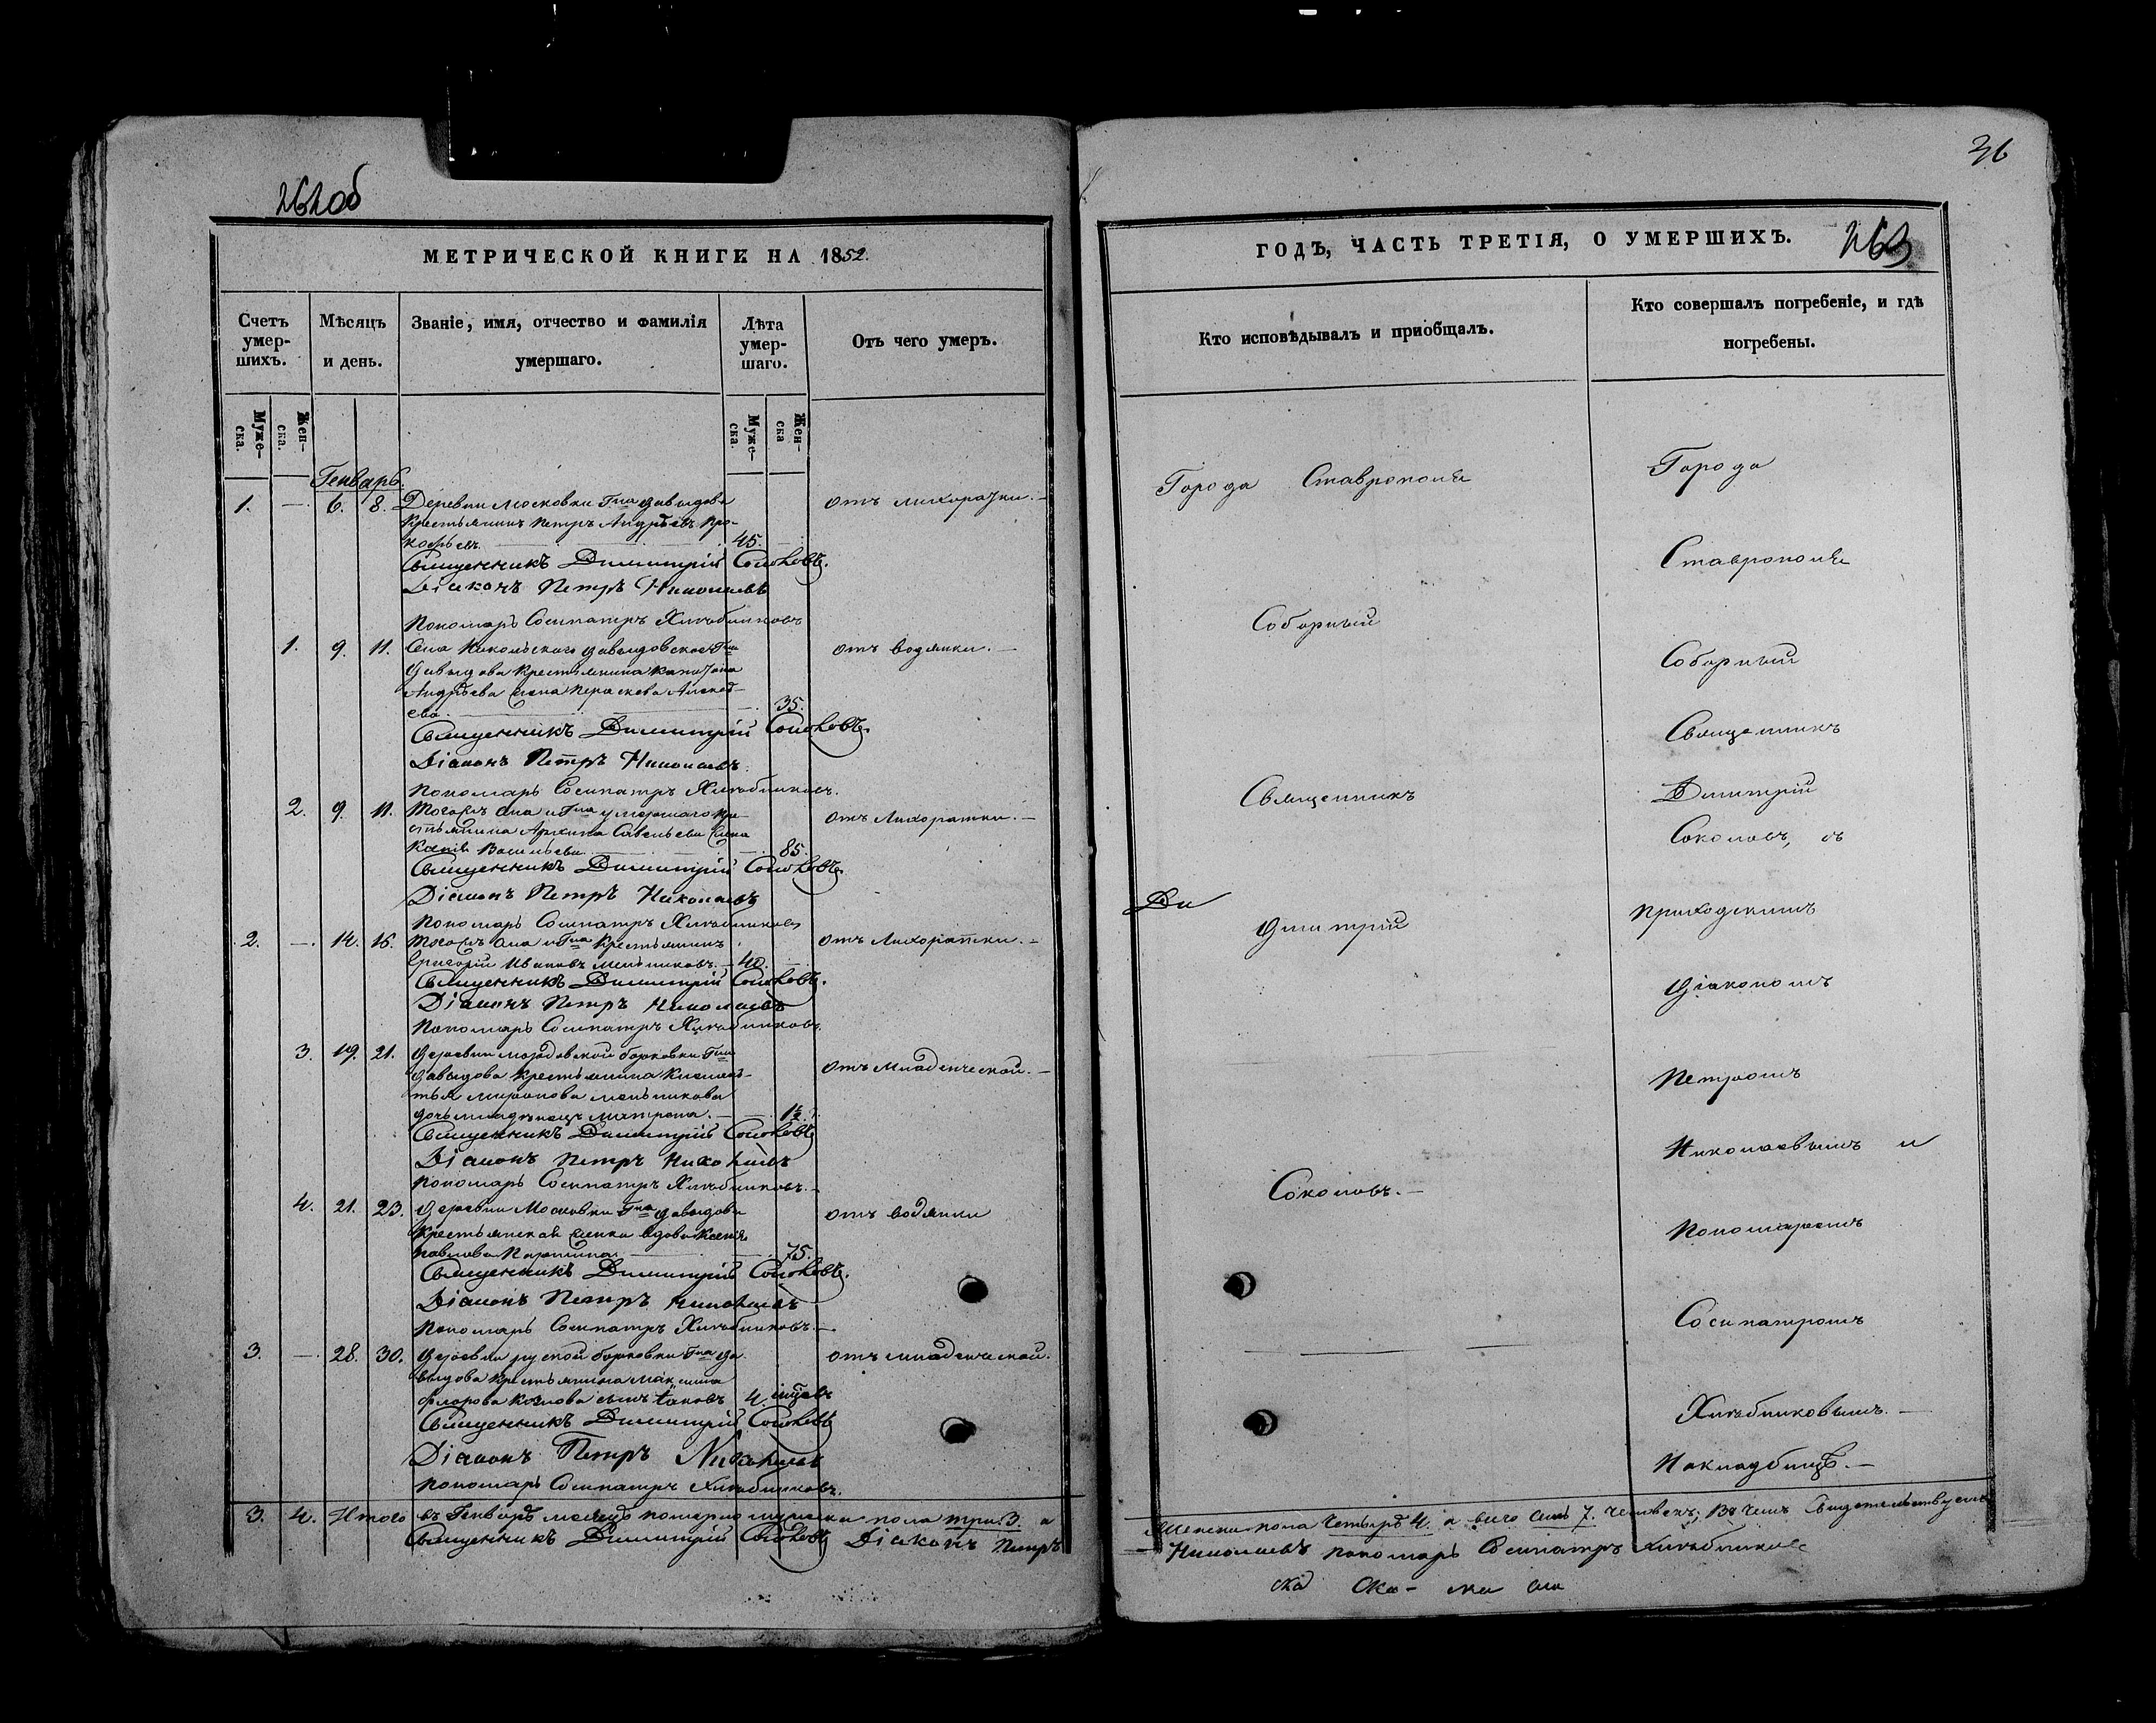 262об
МЕТРИЧЕСКОЙ КНИГИ НА 1852.
Счетъ умер-шихъ. Мѣсяцъ и день. Званіе, имя, отчество и фамилія умершаго. Лѣта умер-шаго. Отъ чего умеръ.
Муже-ска. Жен-ска. Муже-ска. Жен-ска
Генварь.
1. — 6. 8. Деревни Московки Гна Давыдова отъ лихорачки. —
Крестьянинъ Петръ Андрѣевъ Про-
кофьевъ. 45. —
Священникъ Димитрій Соколовъ.
Діаконъ Петръ Николаевъ
Пономарь Сосипатръ Хлѣбниковъ
1. 9. 11. Села Никольскаго Гна отъ водянки. —
Давыдова Крестьянина
Андрѣева жена Параскева Алексѣ-
ева. — 35.
Священникъ Димитрій Соколовъ.
Діаконъ Петръ Николаевъ.
Пономарь Сосипатръ Хлѣбниковъ.
2. 9. 11. Тогожъ села и Гна умершаго кре- отъ Лихоратки. —
стьянина Архипа Савельева жена
Васильева. — 85.
Священникъ Димитрій Соколовъ.
Діаконъ Петръ Николаевъ
Пономарь Сосипатръ Хлѣбниковъ
2. — 14. 16. Тогожъ села и Гна Крестьянинъ отъ Лихоратки. —
Григорій Ивановъ Мельниковъ. — 40. —
Священникъ Димитрій Соколовъ.
Діаконъ Петръ Николаевъ
Пономарь Сосипатръ Хлѣбниковъ.
3. 19. 21. Деревни мордовской борковки Гна отъ младенческой. —
Давыдова крестьянина
Миронова мельникова
дочь младенецъ Матрона. — 1½.
Священникъ Димитрій Соколовъ
Діаконъ Петръ Николаевъ
Пономарь Сосипатръ Хлѣбниковъ. —
4. 21. 23. Деревни Московки Гна Давыдова отъ водянки
Крестьянская женка вдова Ксенія
Павлова — 75.
Священникъ Димитрій Соколовъ.
Діаконъ Петръ Николаевъ
Пономарь Сосипатръ Хлѣбниковъ. —
3. — 28. 30. Деревни руской борковки Гна Да- отъ младенческой.
выдова крестьянина Максима
Флорова Козлова сынъ Іаковъ 4.
Священникъ Димитрій Соколовъ
Діаконъ Петръ Николаевъ
Пономарь Сосипатръ Хлѣбниковъ.
3. 4. Итого въ Генварѣ месяцѣ померло мужеска пола три 3. а
Священникъ Димитрій Соколовъ Діаконъ Петръ
36
ГОДЪ, ЧАСТЬ ТРЕТІЯ, О УМЕРШИХЪ.
263
Кто исповѣдывалъ и пріобщалъ. Кто совершалъ погребеніе, и гдѣ погребены.
Города Ставрополя
Соборный
Священникъ
Ди
Димитрій
Соколовъ. —
Города
Ставрополя
Соборный
Священникъ
Димитрій
Соколовъ, съ
приходскимъ
Діакономъ
Петромъ
Николаевымъ и
Пономаремъ
Сосипатромъ
Хлѣбниковымъ. —
На кладбищѣ. —
Женска пола четырѣ 4. а всего семь 7. человекъ; Въ чемъ Свидетельствуемъ
Николаевъ пономарь Сосипатръ Хлѣбниковъ